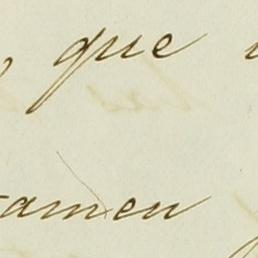 que
tamen